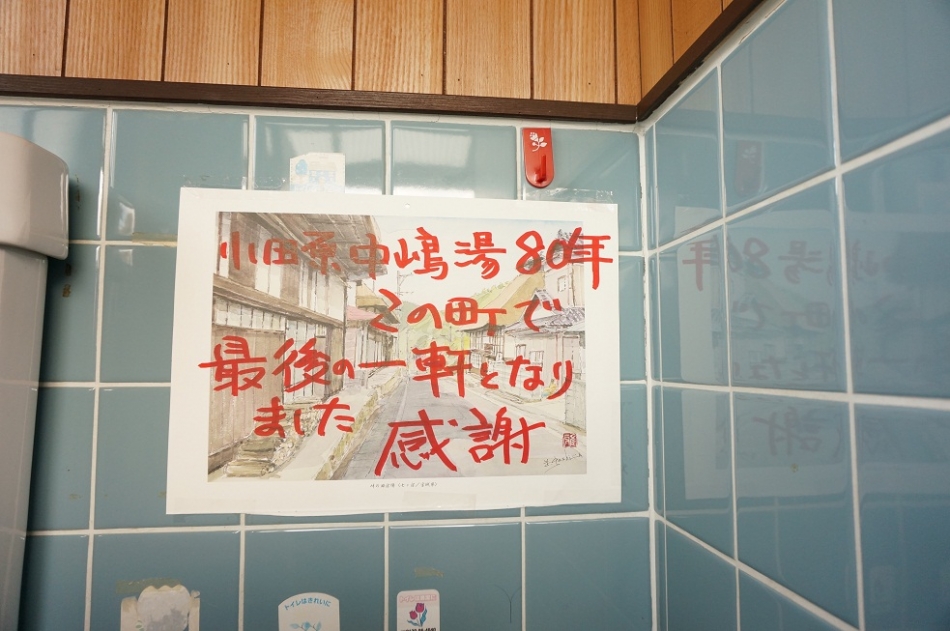 小田原中嶋湯80年
この町で
最後の一軒となり
ました 感謝
トイレはきれいに